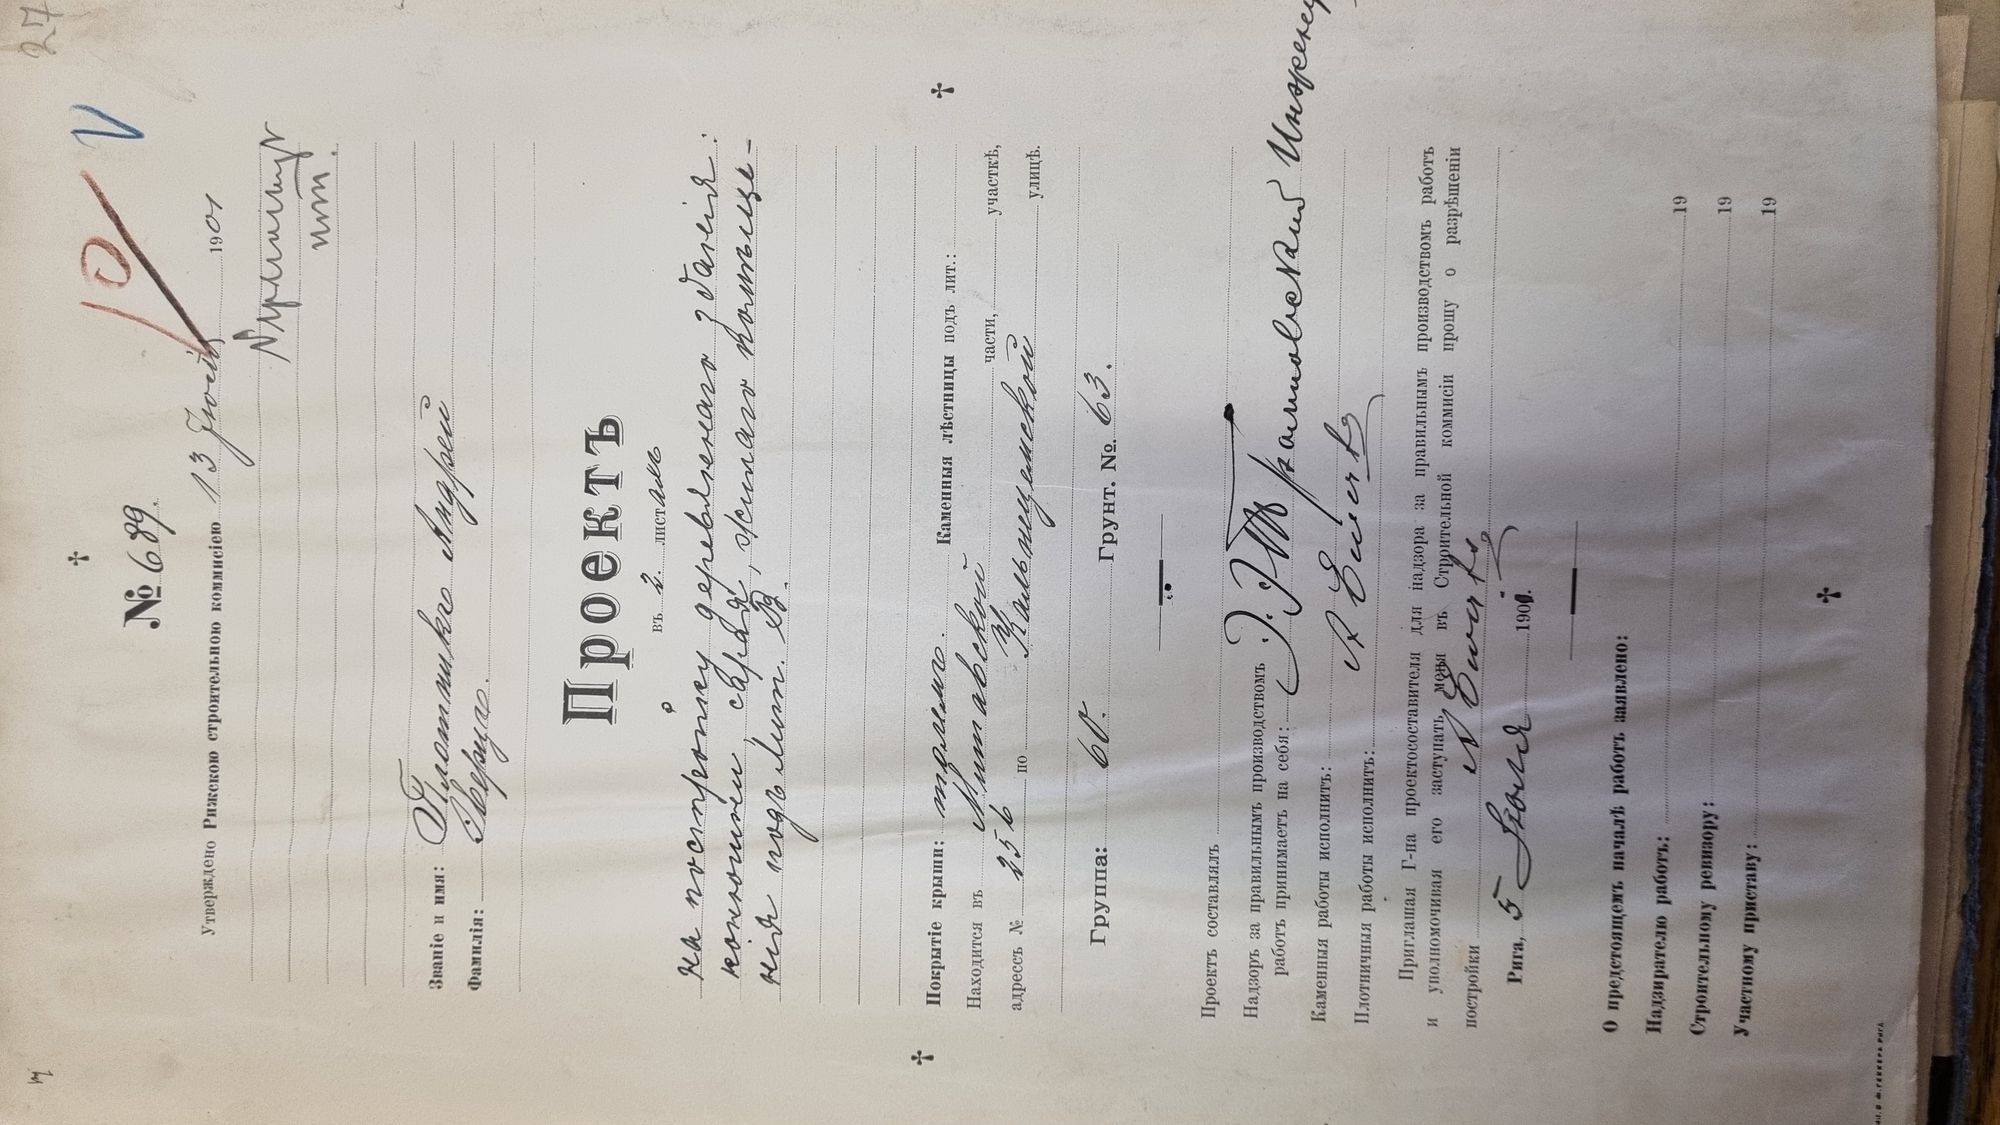 27
№ 689.
10 V
Утверждено Рижскою строительною коммисіею 13 Іюня 1901
Званіе и имя: Плотника Андрей
Фамилія:
Проектъ
въ 2 листахъ
На постройку деревяннаго зданія:
конюшни, сарая, жилаго помѣще-
нія подъ Лит. В.
Покрытіе крыши: толемъ. Каменныя лѣстницы подъ лит.:
Находится въ Митавской части, участкѣ,
адрессъ № 25 b по Кальнцемской улицѣ.
Группа: 60. Грунт. №. 63.
Проектъ составлялъ
Надзоръ за правильнымъ производствомъ
работъ принимаетъ на себя: Инженер
Каменныя работы исполнитъ:
Плотничныя работы исполнитъ:
Приглашая Г-на проектосоставителя для надзора за правильнымъ производствомъ работъ
и уполномочивая его заступать меня въ Строительной коммисіи прошу о разрѣшеніи
постройки
Рига, 5 Іюня 1901.
О предстоящемъ началѣ работъ заявлено:
Надзирателю работъ: 19
Строительному ревизору: 19
Участному приставу: 19